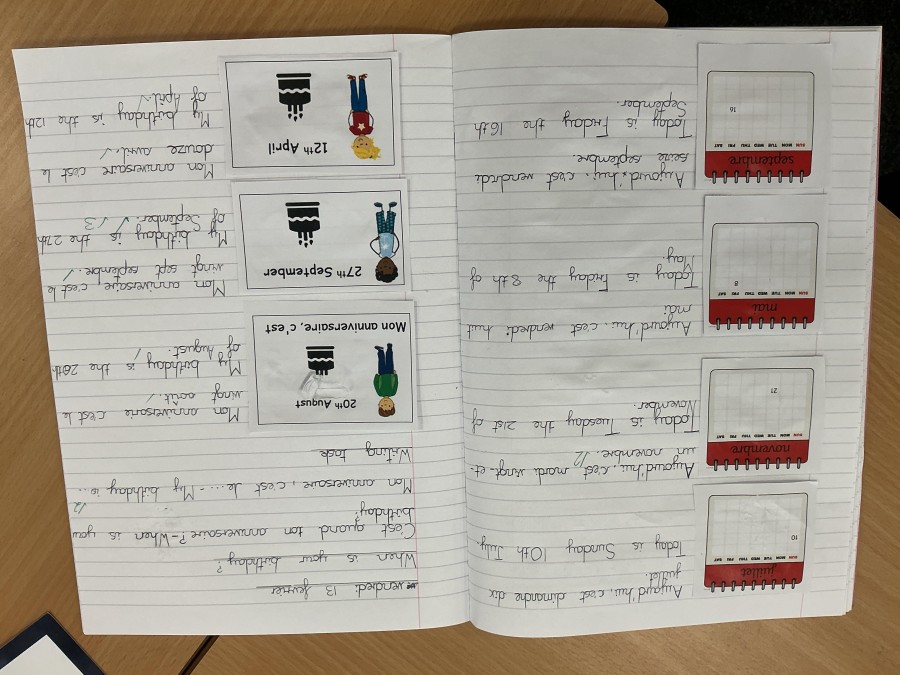 juillet
SUN MON TUE WED THU FRI SAT
10
Aujourd'hui, c'est dimanche dix
juillet.
Today is Sunday 10th July.
novembre
SUN MON TUE WED THU FRI SAT
21
Aujourd'hui, c'est mardi vingt-et-
un novembre. /2
Today is Tuesday the 21st of
November.
mai
SUN MON TUE WED THU FRI SAT
8
Aujourd'hui, c'est vendredi huit
mai.
Today is Friday the 8th of
May.
septembre
SUN MON TUE WED THU FRI SAT
16
Aujourd'hui, c'est vendredi
seize septembre.
Today is Friday the 16th
September.
vendredi 13 fevrier
When is your birthday?
C'est quand ton anniversaire?-When is your
birthday? /2
Mon anniversaire, c'est le.... - My birthday is...
Writing task
20th August
Mon anniversaire, c'est
Mon anniversarie c'est le
vingt août.
My birthday is the
of August.
27th September
Mon anniversaire, c'est le
vingt sept septembre.
My birthday is the 27th
of September. /3
12th April
Mon anniversaire c'est le
douze avril.
My birthday is the 12th
of April.